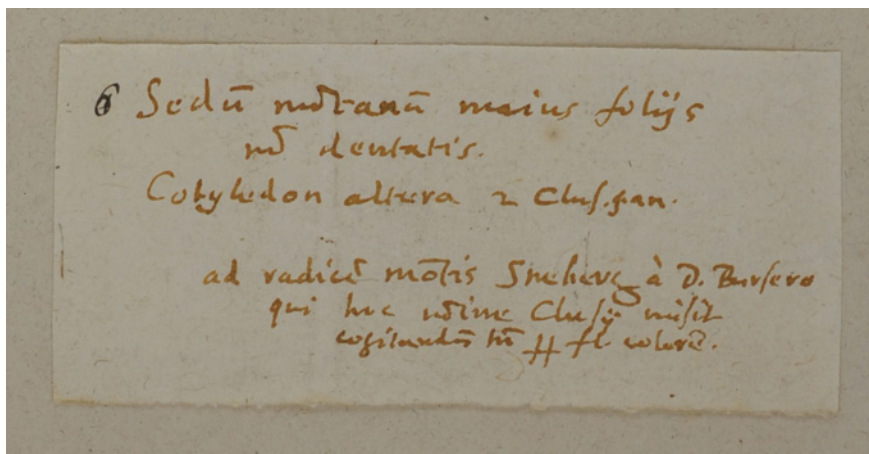 6 Sedū mōtanū maius folijs
nō dentatis.
Cotyledon altera 2 Clus. pan.
ad radicē mōtis Sneberg à D. Bursero
qui hoc nōine Clusij misit
cogitandū tn̄ fl. colorē.